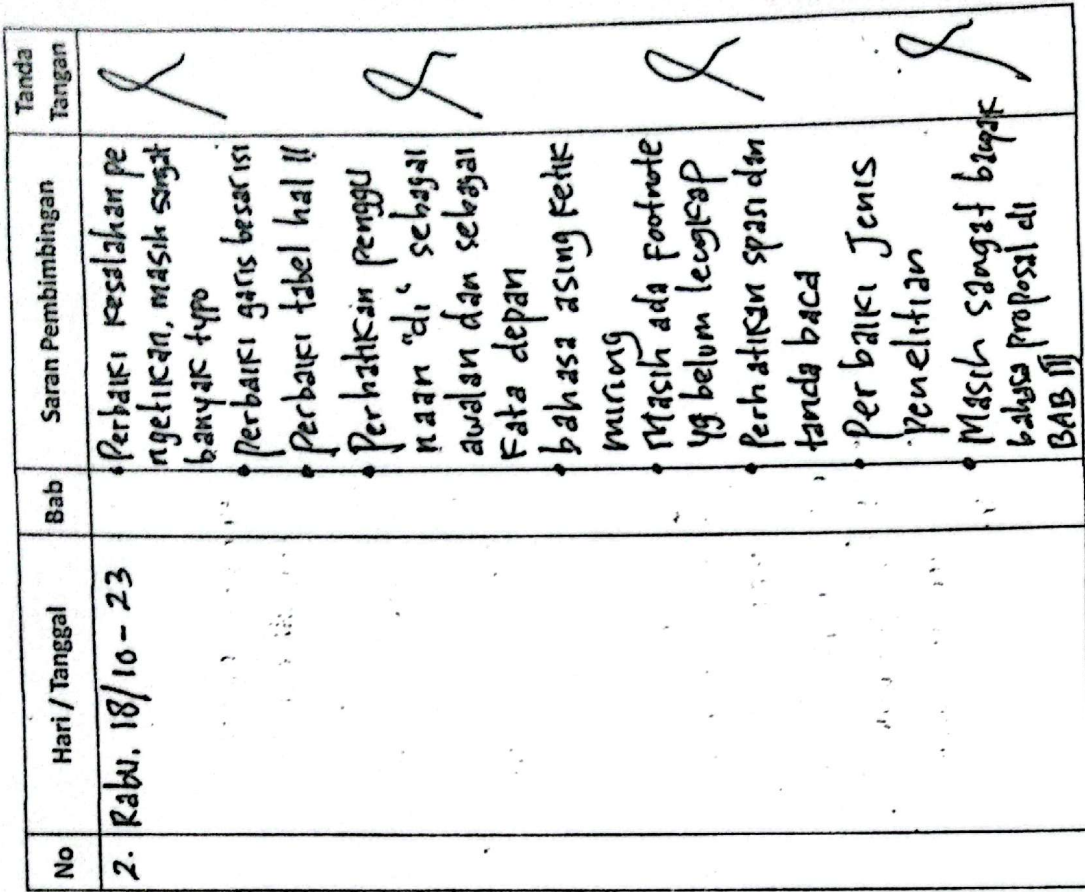 No
Hari / Tanggal
Bab
Saran Pembimbingan
Tanda
Tangan
2.
Rabu, 18/10-23
• Perbaiki kesalahan pe
ngetikan, masih sangat
banyak typo
• Perbaiki garis besar isi
• Perbaiki tabel hal 11
• Perhatikan penggu
naan "di" sebagai
awalan dan sebagai
kata depan
• bahasa asing ketik
miring
• Masih ada Footnote
yg belum lengkap
• Perhatikan spasi dan
tanda baca
• Perbaiki Jenis
penelitian
• Masih sangat banyak
bahasa proposal di
BAB III